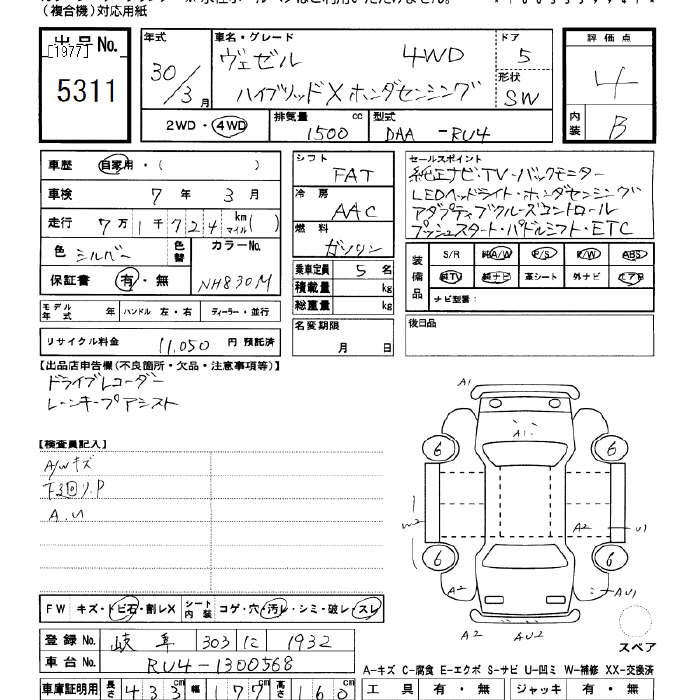 (複合機)対応用紙
出品No.
[1977]
5311
年式 30/3月
車名・グレード
ヴェゼル 4WD
ハイブリッドX ホンダセンシング
ドア 5
形状 SW
2WD・4WD
排気量 1500 cc
型式 DAA-RU4
評価点 4
内装 B
車歴 自家用・( )
車検 7年 3月
走行 7万1千724 km マイル( )
色 シルバー 色替 カラーNo.
保証書 有・無 NH830M
モデル年式 年 ハンドル 左・右 ディーラー・並行
リサイクル料金 11,050 円 預託済
シフト FAT
冷房 AAC
燃料 ガソリン
乗車定員 5 名
積載量 kg
総重量 kg
名変期限
月 日
セールスポイント
純正ナビ・TV・バックモニター
LEDヘッドライト・ホンダセンシング
アダプティブクルーズコントロール
プッシュスタート・パドルシフト・ETC
装備品
S/R 純A/W P/S P/W ABS
純TV 純ナビ 革シート 外ナビ エアB
ナビ型番:
後日品
【出品店申告欄(不良箇所・欠品・注意事項等)】
ドライブレコーダー
レーンキープアシスト
【検査員記入】
A/Wキズ
下廻リ.P
A.U
A1
A1
6
6
W2
A2
U1
6
6
A2
A2
AU1
A2
AU2
スペア
FW キズ・トビ石・割レX
シート内装 コゲ・穴・汚レ・シミ・破レ・スレ
登録No. 岐阜 303 に 1932
車台No. RU4-1300568
車庫証明用 長さ 433cm 幅 177cm 高さ 160cm
A-キズ C-腐食 E-エクボ S-サビ U-凹ミ W-補修 XX-交換済
工具 有・無 ジャッキ 有・無